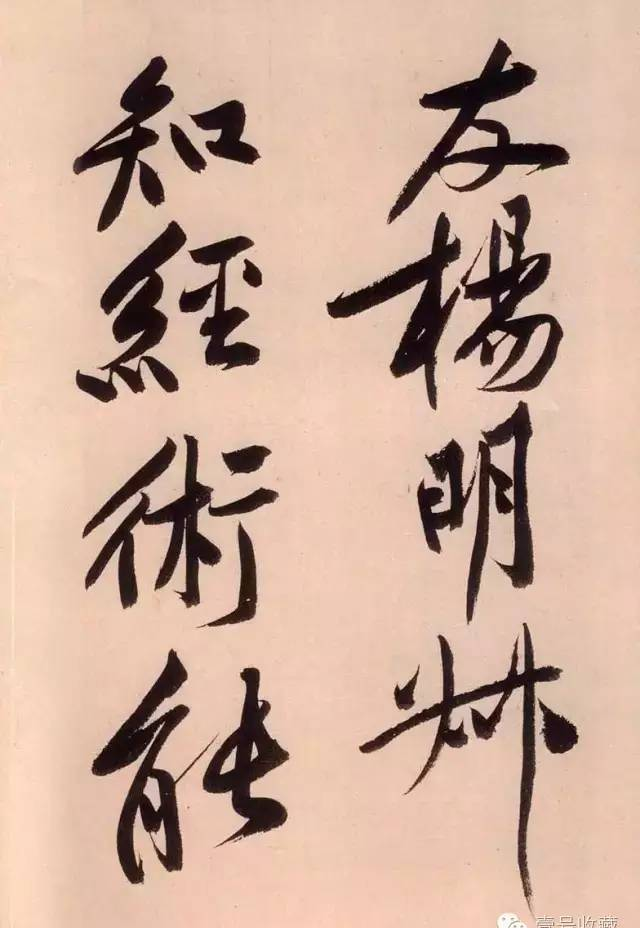 友楊明叔
知經術能
壹号收藏